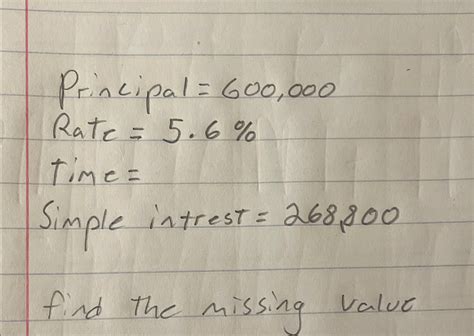 Principal = 600,000
Rate = 5.6%
Time =
Simple intrest = 268,800
find the missing value